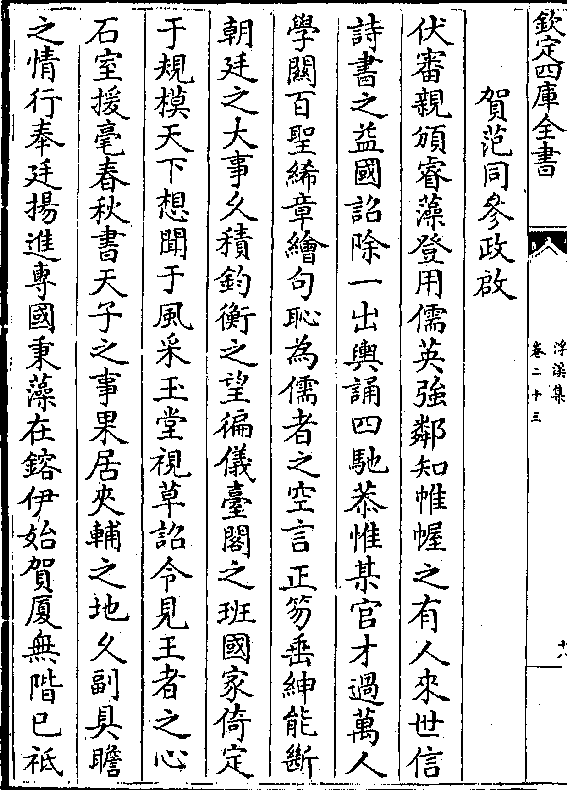 欽定四庫全書
浮溪集
卷二十三
六
賀范同參政啟
伏審親頒睿藻登用儒英強鄰知帷幄之有人來世信
詩書之益國詔除一出輿誦四馳恭惟某官才過萬人
學闚百聖絺章繪句恥為儒者之空言正笏垂紳能斷
朝廷之大事久積鈞衡之望徧儀臺閣之班國家倚定
于規模天下想聞于風采玉堂視草詔令見王者之心
石室援毫春秋書天子之事果居夾輔之地久副具瞻
之情行奉廷揚進專國秉藻在鎔伊始賀厦無階已祗